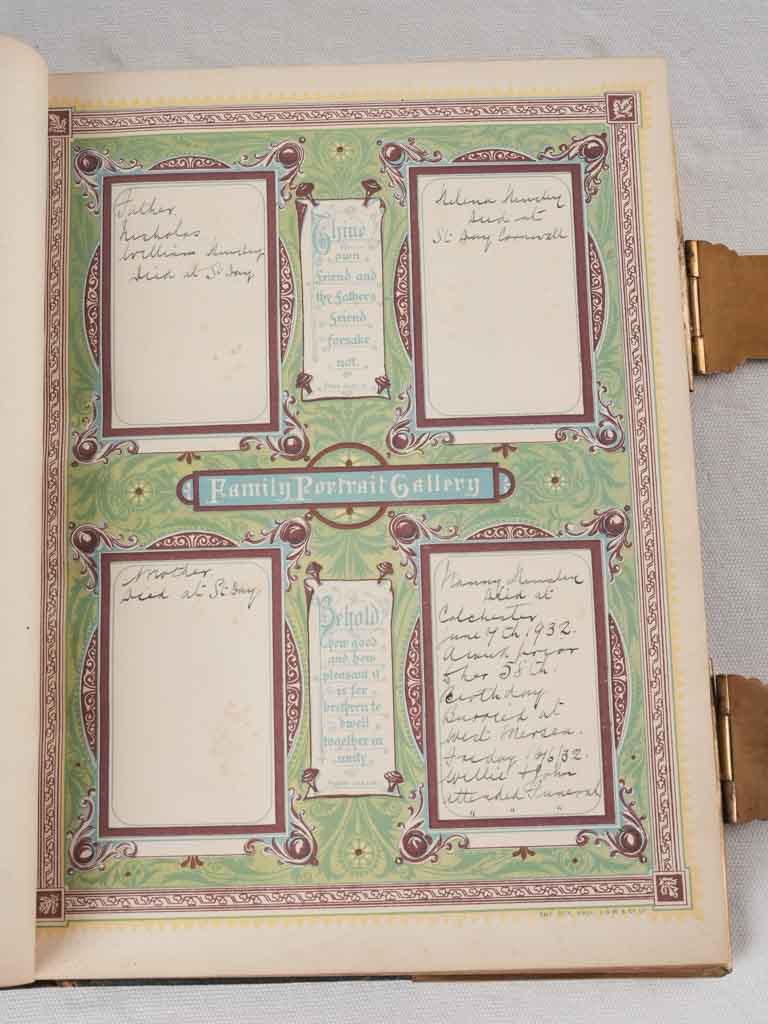 Father
Nicholas
William
Died at St Day
Thine
own
Friend and
the Fathers
Friend
forsake
not.
Helena
Died at
St Day Cornwall
Family Portrait Gallery
Mother
Died at St Day
Behold
how good
and how
pleasant it
is for
brethren to
dwell
together in
unity
Nanny
Died at
Colchester
June 7th 1932.
her 58th
Birthday
Burried at
West Mersea.
Friday 10/6/32.
Willie + John
attended Funeral
" " "